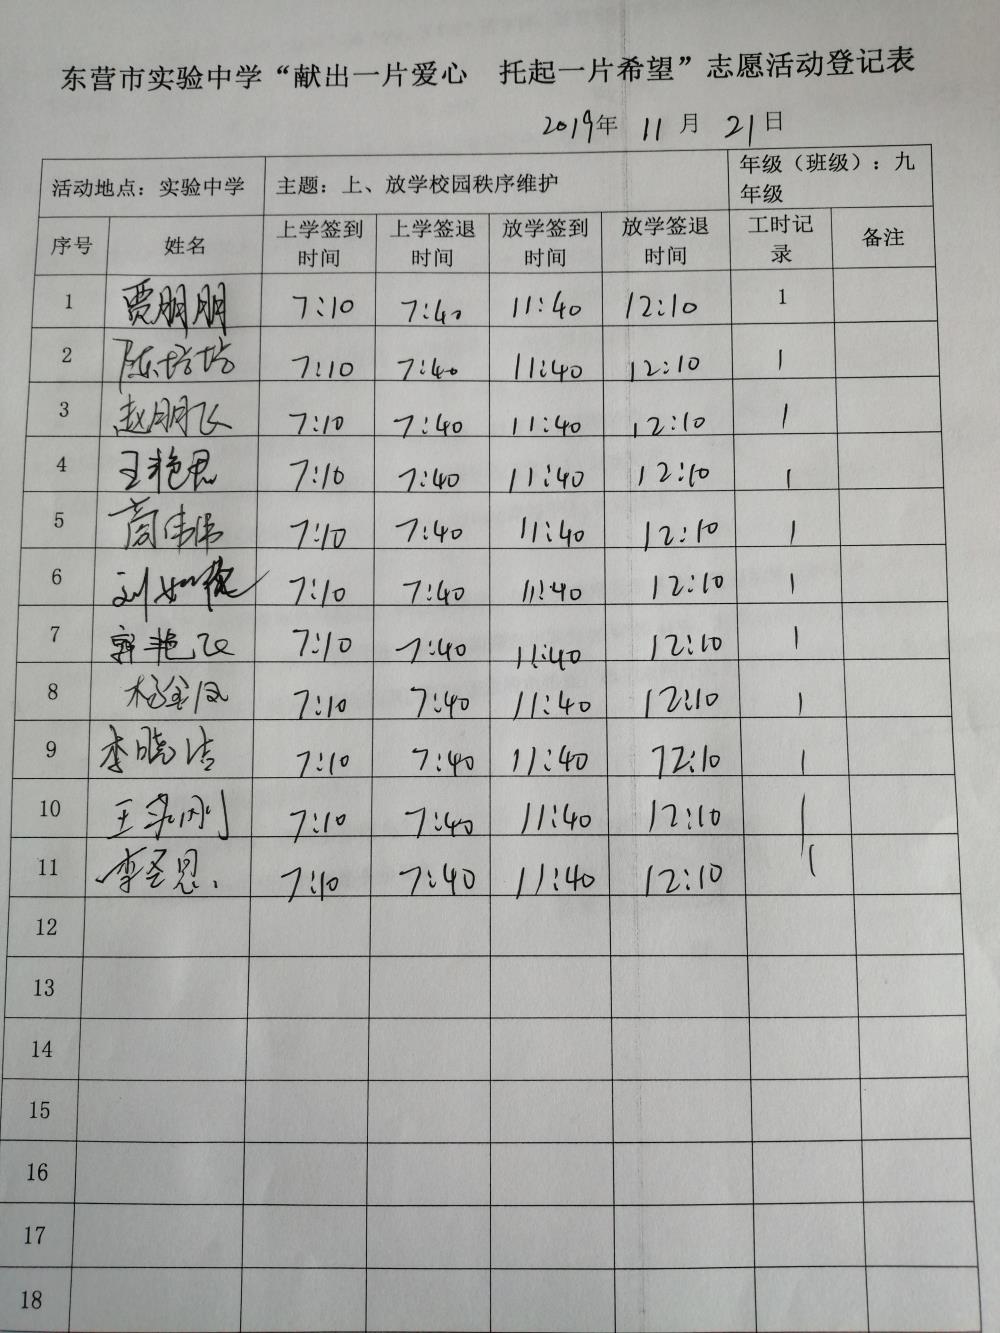 东营市实验中学“献出一片爱心 托起一片希望”志愿活动登记表
2019年 11月 21日
活动地点：实验中学 主题：上、放学校园秩序维护 年级（班级）：九年级
序号 姓名 上学签到时间 上学签退时间 放学签到时间 放学签退时间 工时记录 备注
1 贾朋朋 7:10 7:40 11:40 12:10 1
2 陈培培 7:10 7:40 11:40 12:10 1
3 赵朋飞 7:10 7:40 11:40 12:10 1
4 王艳君 7:10 7:40 11:40 12:10 1
5 伟伟 7:10 7:40 11:40 12:10 1
6 刘如 7:10 7:40 11:40 12:10 1
7 郭艳飞 7:10 7:40 11:40 12:10 1
8 杨金凤 7:10 7:40 11:40 12:10 1
9 李晓洁 7:10 7:40 11:40 12:10 1
10 王 刚 7:10 7:40 11:40 12:10 1
11 李圣恩 7:10 7:40 11:40 12:10 1
12
13
14
15
16
17
18